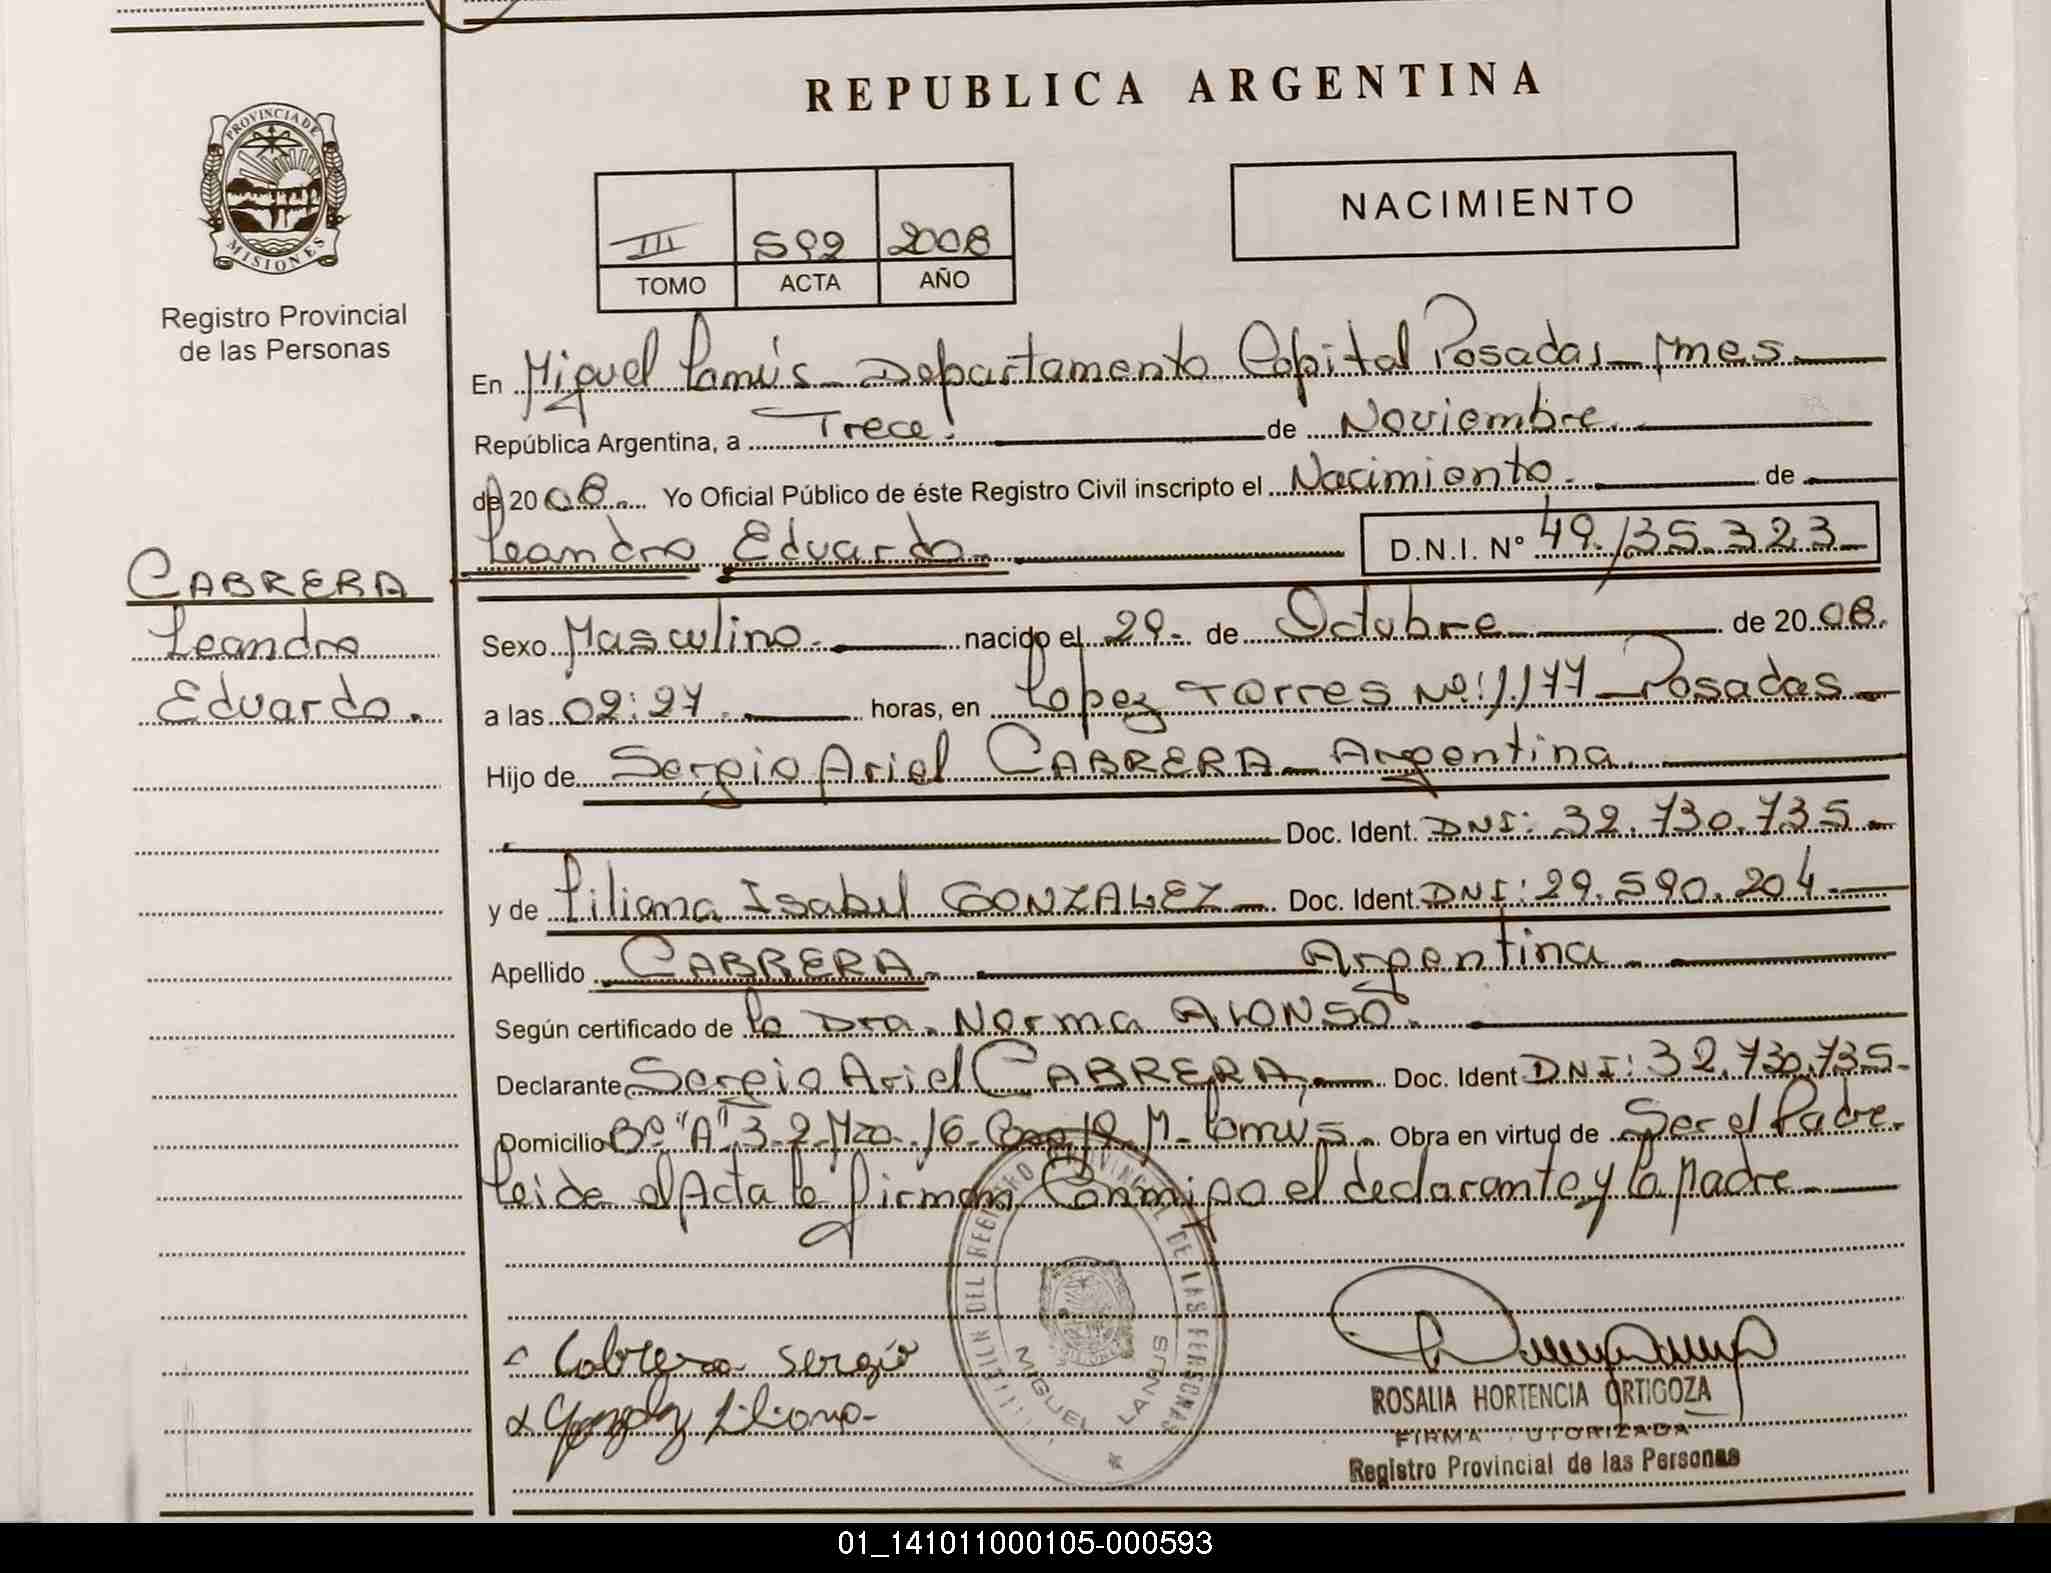 REPUBLICA ARGENTINA
PROVINCIA DE
MISIONES
Registro Provincial
de las Personas
NACIMIENTO
III 592 2008
TOMO ACTA AÑO
En Miguel Lanús - Departamento Capital Posadas - Mnes.
República Argentina, a Trece. de Noviembre.
de 2008. Yo Oficial Público de éste Registro Civil inscripto el Nacimiento. de
Leandro Eduardo.- D.N.I. Nº 49.135.323-
CABRERA
Leandro
Eduardo.
Sexo Masculino. nacido el 29. de Octubre de 2008.
a las 02:27. horas, en Lopez Torres Nº:1.177 - Posadas -
Hijo de Sergio Ariel CABRERA - Argentina.
Doc. Ident. DNI: 32.730.735.-
y de Liliana Isabel GONZALEZ - Doc. Ident. DNI: 29.590.204.-
Apellido CABRERA. Argentina.
Según certificado de la Dra. Norma ALONSO.
Declarante Sergio Ariel CABRERA, Doc. Ident DNI: 32.730.735-
Domicilio Bº "A" 3-2-Mza. 16 M. Lanús - Obra en virtud de Ser el Padre.
Leida el Acta la firman Conmigo el declarante y la Madre
Cabrera Sergio
Gonzalez Liliana-
DEL REGISTRO PROVINCIAL DE LAS PERSONAS
MIGUEL LANUS
ROSALIA HORTENCIA ORTIGOZA
FIRMA UTORIZADA
Registro Provincial de las Personas
01_141011000105-000593